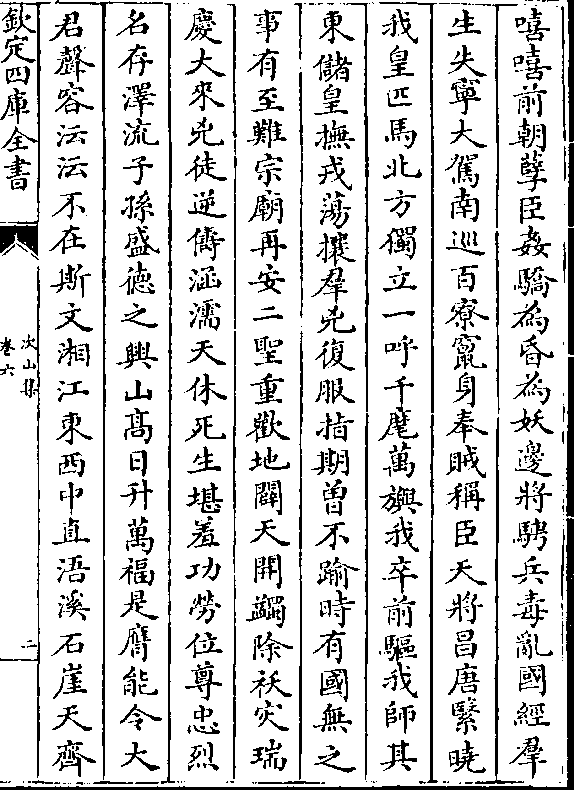 嘻嘻前朝孽臣姦驕為昏為妖邊將騁兵毒亂國經羣
生失寧大駕南巡百寮竄身奉賊稱臣天將昌唐繄曉
我皇匹馬北方獨立一呼千麾萬旟我卒前驅我師其
東儲皇撫戎蕩攘羣兇復服指期曽不踰時有國無之
事有至難宗廟再安二聖重歡地闢天開蠲除祅災瑞
慶大來兇徒逆儔涵濡天休死生堪羞功勞位尊忠烈
名存澤流子孫盛德之興山高日升萬福是膺能令大
君聲容沄沄不在斯文湘江東西中直浯溪石崖天齊
欽定四庫全書
次山集
卷六
二